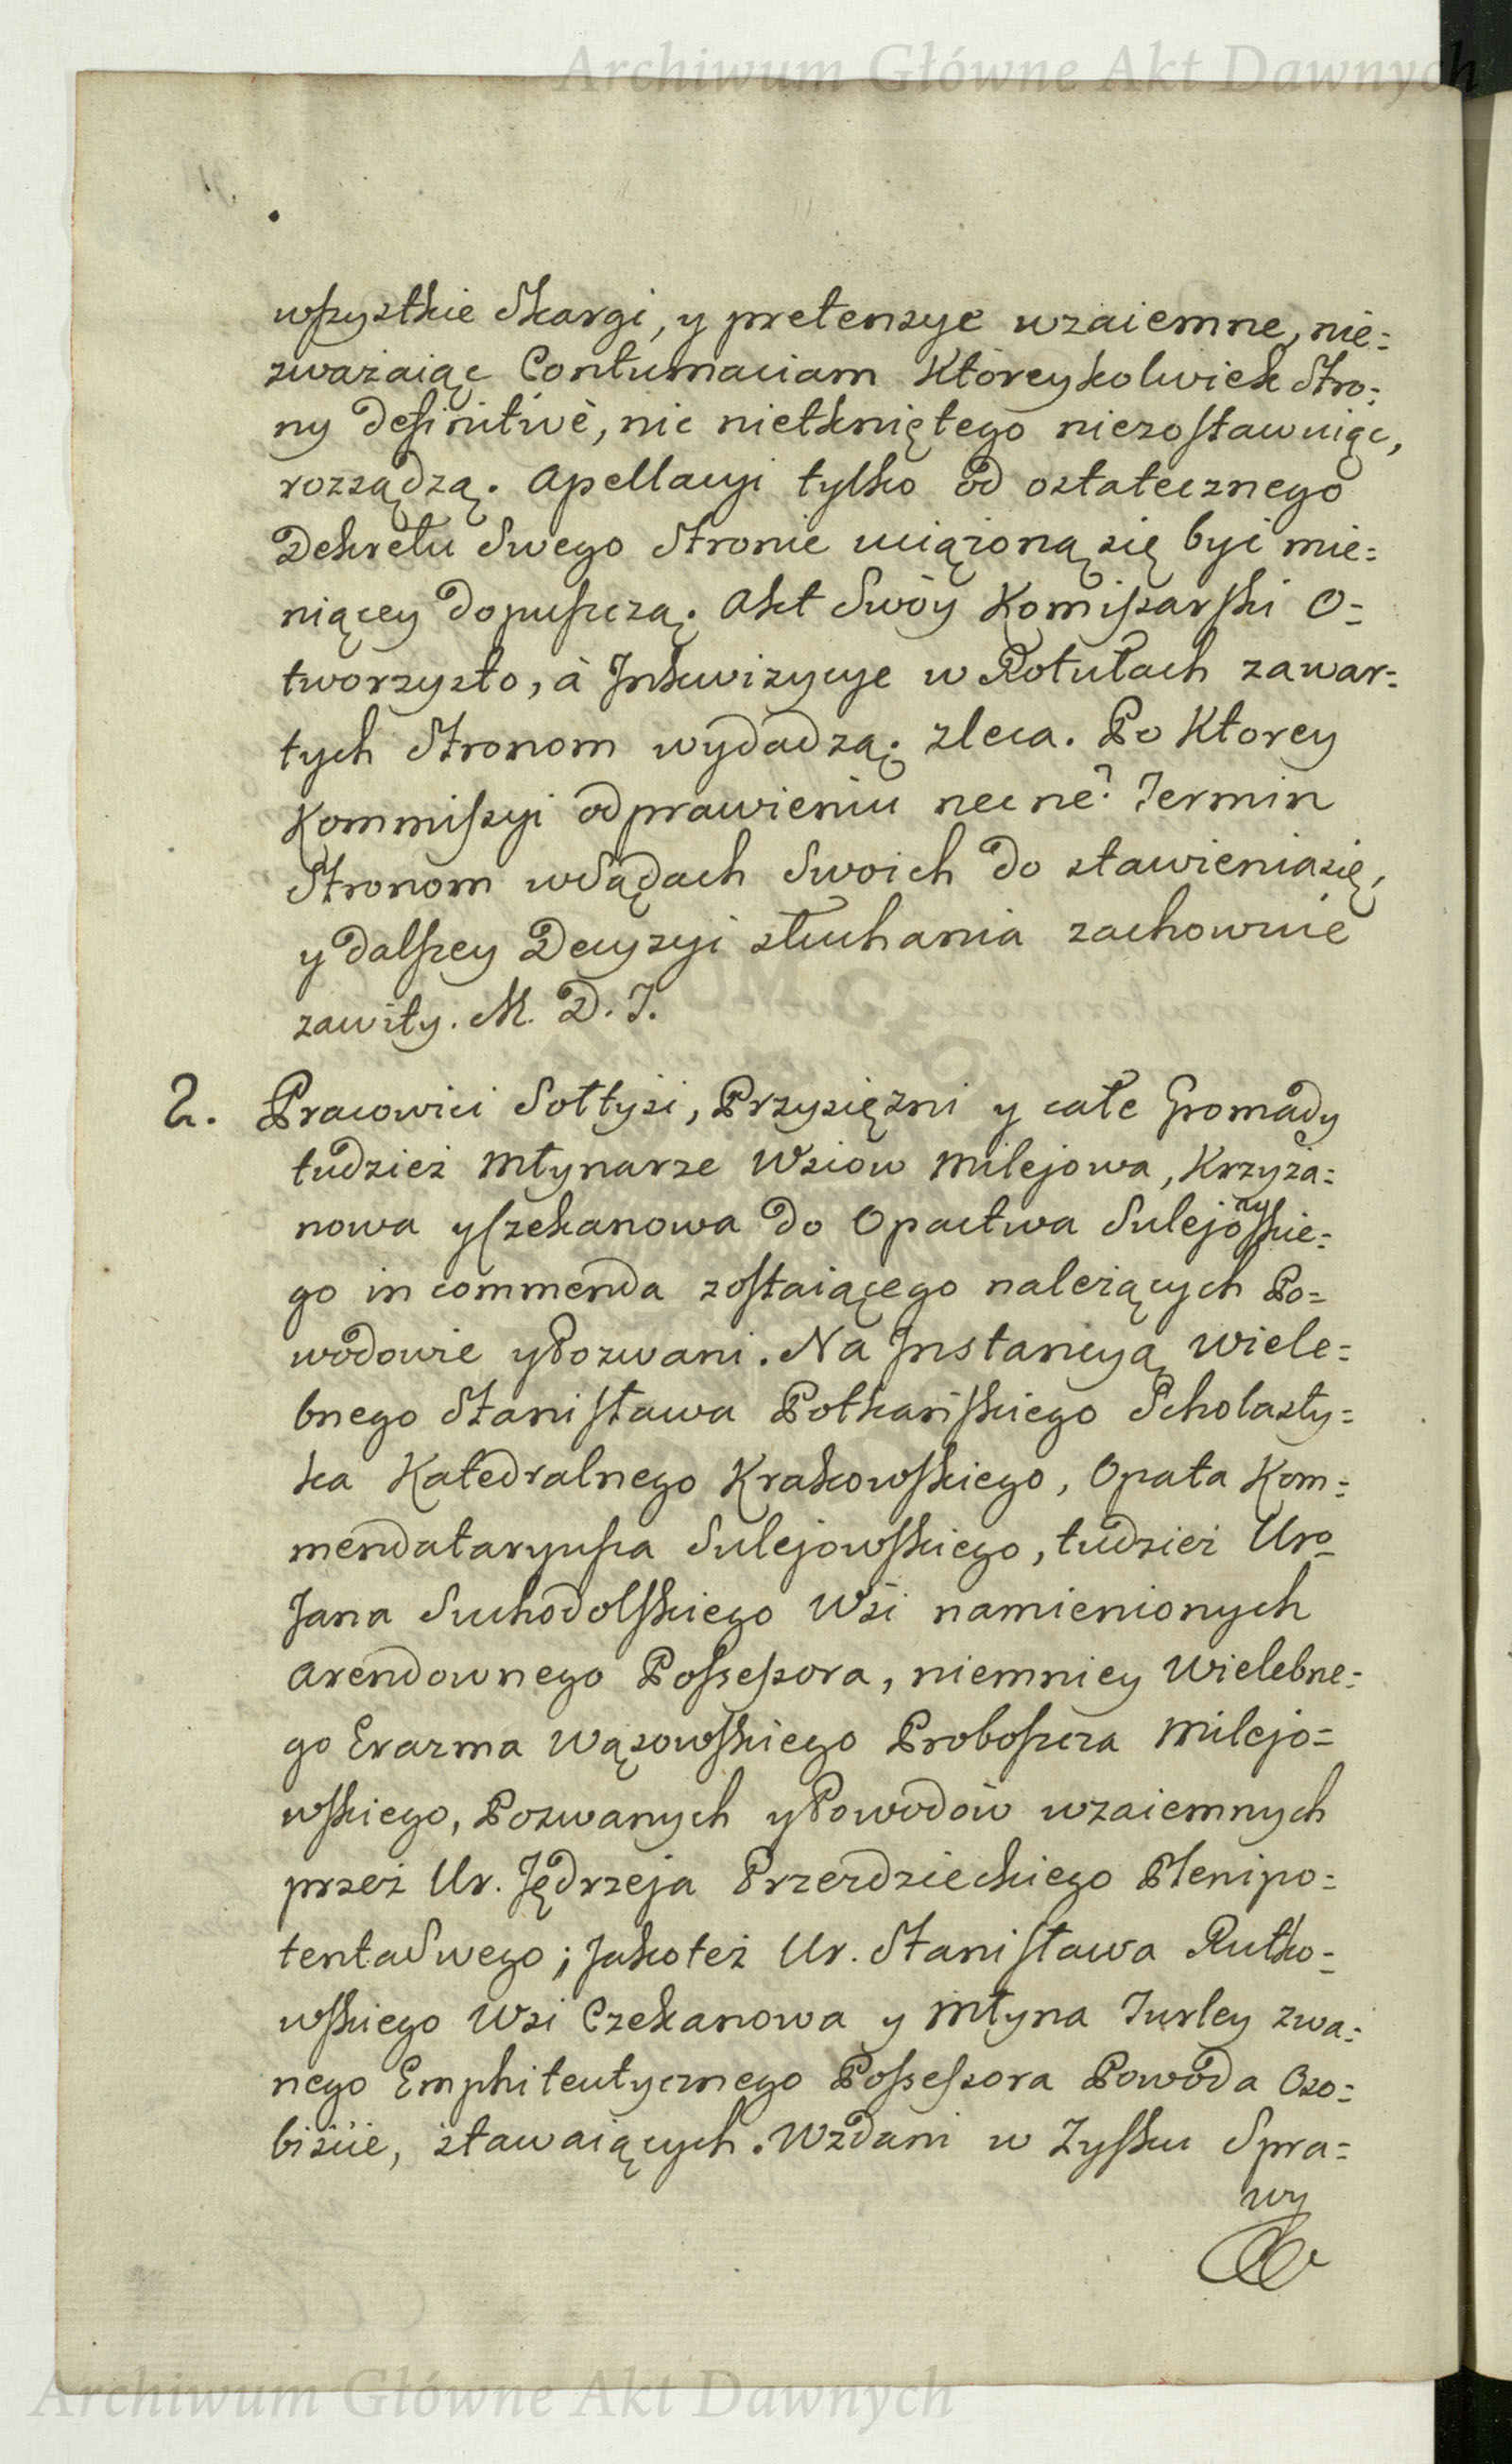 Archiwum Główne Akt Dawnych
wszystkie Skargi, y pretensye wzaiemne, nie=
zważaiąc Contumaciam Któreykolwiek Stro=
ny definitivè, nic nietkniętego niezostawuiąc,
rozsądzą. Apellacyi tylko od ostatecznego
Dekretu Swego Stronie uciążoną się być mie=
niącey dopuszczą. Akt Swóy Komissarski O=
tworzysto, à Inkwizycye w Rotułach zawar=
tych Stronom wydadzą; zleca. Po Którey
Kommissyi odprawieniu necne? Termin
Stronom w Sądach Swoich do stawienia się,
y dalszey Decyzyi słuchania zachownie
zawity. M. D. I.
2. Pracowici Sołtysi, Przysiężni y całe Gromady
tudzież Młynarze Wsiów Milejowa, Krzyża=
nowa y Czekanowa do Opactwa Sulejowskie=
go in commenda zostaiącego należących Po=
wodowie y Pozwani. Na Instancyą Wiele=
bnego Stanisława Potkańskiego Scholasty=
ka Katedralnego Krakowskiego, Opata Kom=
mendataryusza Sulejowskiego, tudzież Uro=
Jana Suchodolskiego Wsi namienionych
Arendownego Possessora, niemniey Wielebne=
go Erazma Wąsowskiego Proboszcza Milejo=
wskiego, Pozwanych y Powodów wzaiemnych
przez Ur. Jędrzeja Przerdzieckiego Plenipo=
tenta Swego; Jakoteż Ur. Stanisława Rutko=
wskiego Wsi Czekanowa y Młyna Turley zwa=
nego Emphiteutycznego Possessora Powoda Oso=
biście, stawaiących. Wzdani w Zysku Spra=
wy
Archiwum Główne Akt Dawnych